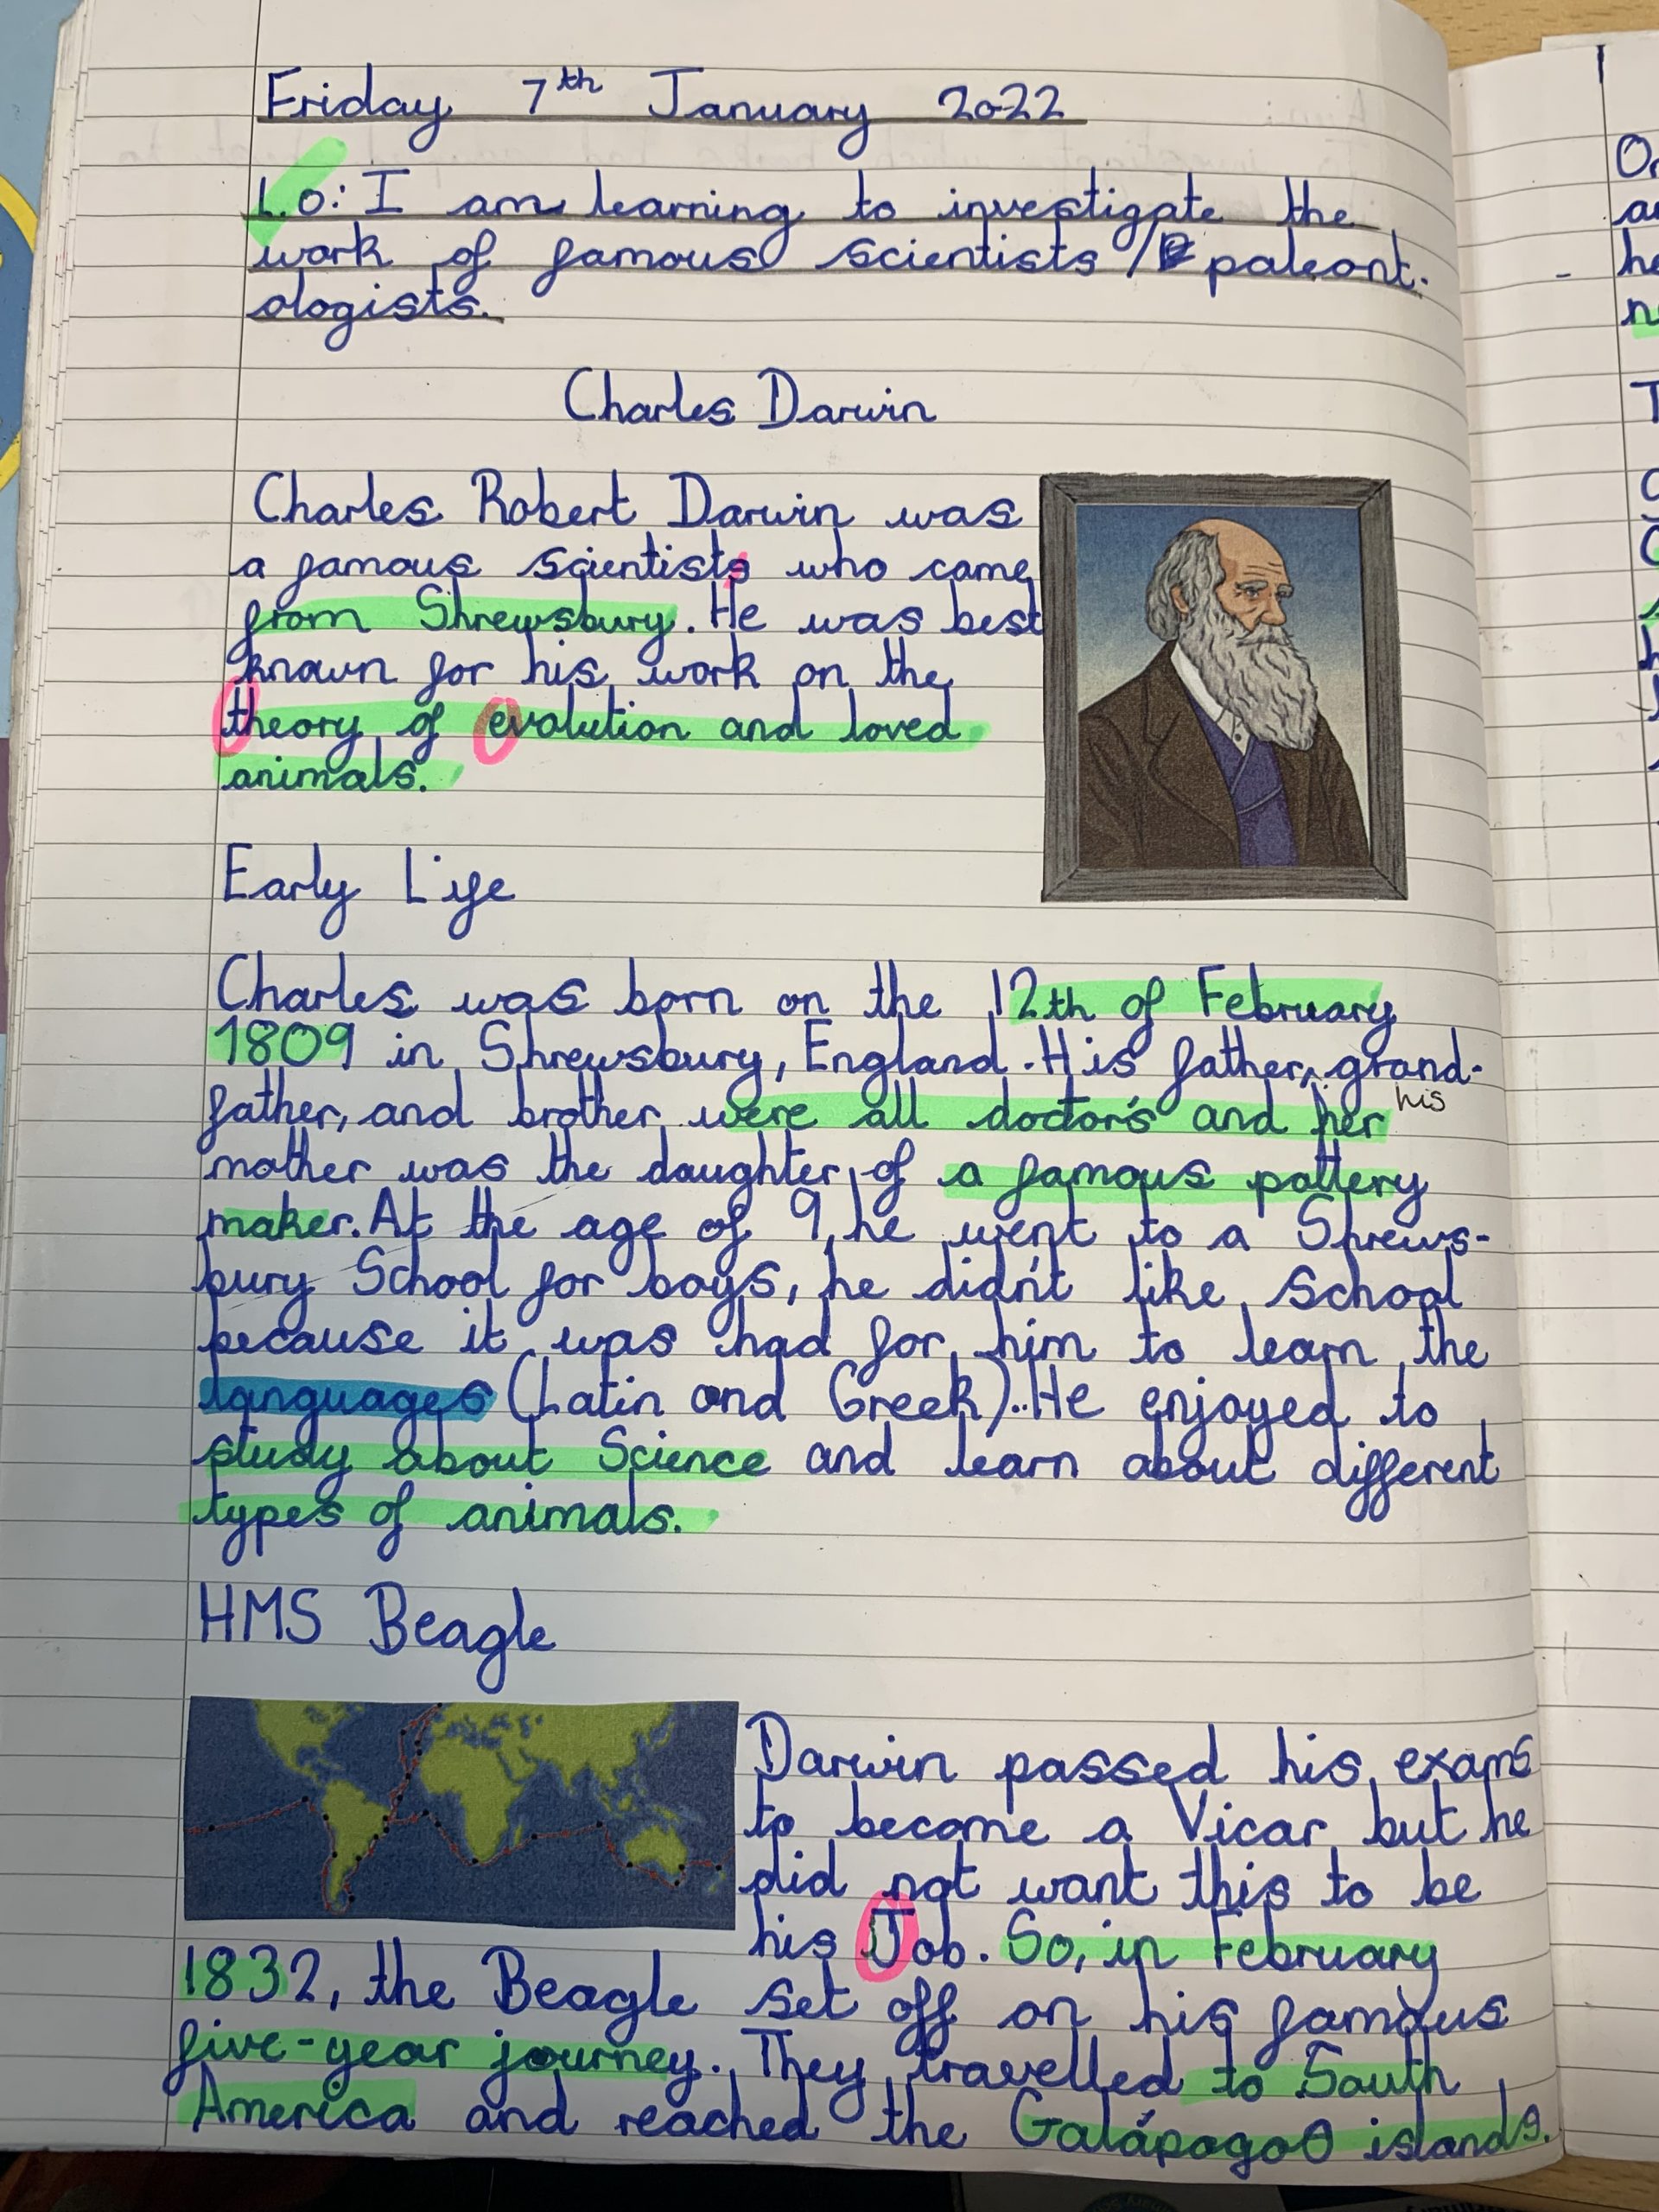 Friday 7th January 2022
L.O: I am learning to investigate the
work of famous scientists / paleont-
ologists.
Charles Darwin
Charles Robert Darwin was
a famous scientists who came
from Shrewsbury. He was best
known for his work on the
theory of evolution and loved
animals.
Early Life
Charles was born on the 12th of February
1809 in Shrewsbury, England. His father, grand-
father, and brother were all doctor's and her his
mother was the daughter of a famous pottery
maker. At the age of 9, he went to a Shrews-
bury School for boys, he didn't like school
because it was had for him to learn the
languages (Latin and Greek). He enjoyed to
study about Science and learn about different
types of animals.
HMS Beagle
Darwin passed his exams
to become a Vicar but he
did not want this to be
his Job. So, in February
1832, the Beagle set off on his famous
five-year journey. They travelled to South
America and reached the Galápagos islands.